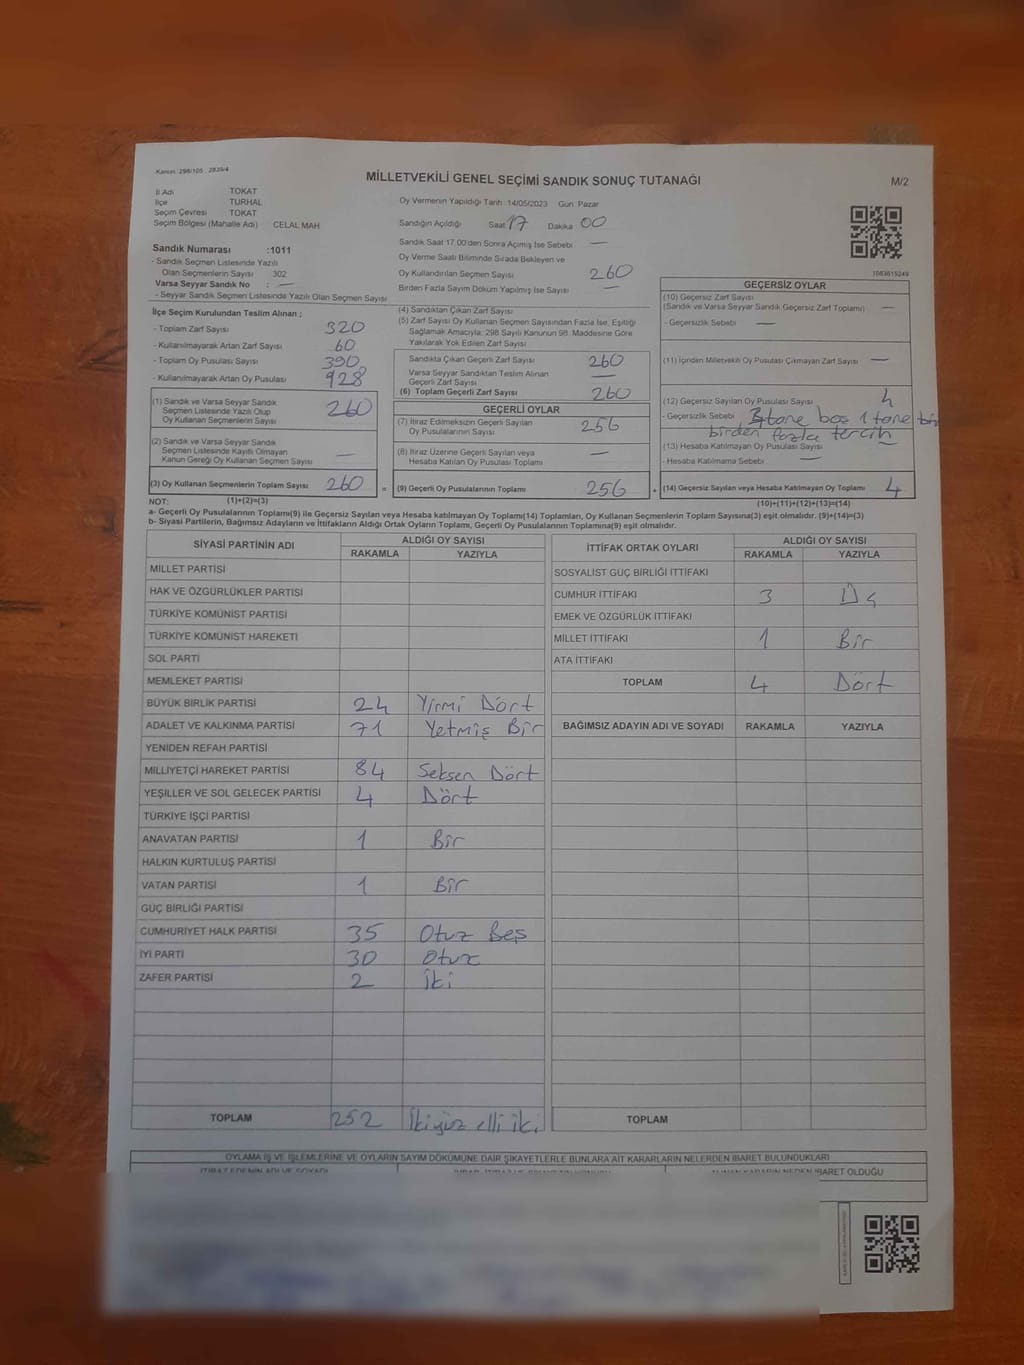 Kanun: 298/105 , 2839/4
MİLLETVEKİLİ GENEL SEÇİMİ SANDIK SONUÇ TUTANAĞI
M/2
İl Adı TOKAT
İlçe TURHAL
Seçim Çevresi TOKAT
Seçim Bölgesi (Mahalle Adı) CELAL MAH
Oy Vermenin Yapıldığı Tarih :14/05/2023 Gün Pazar
Sandığın Açıldığı Saat 17 Dakika 00
Sandık Saat 17.00'den Sonra Açılmış İse Sebebi —
Oy Verme Saati Bitiminde Sırada Bekleyen ve
Oy Kullandırılan Seçmen Sayısı 260
Birden Fazla Sayım Döküm Yapılmış İse Sayısı —
1083615249
Sandık Numarası :1011
- Sandık Seçmen Listesinde Yazılı
Olan Seçmenlerin Sayısı 302
Varsa Seyyar Sandık No : —
- Seyyar Sandık Seçmen Listesinde Yazılı Olan Seçmen Sayısı
İlçe Seçim Kurulundan Teslim Alınan ;
- Toplam Zarf Sayısı 320
- Kullanılmayarak Artan Zarf Sayısı 60
- Toplam Oy Pusulası Sayısı 390
- Kullanılmayarak Artan Oy Pusulası 928
(1) Sandık ve Varsa Seyyar Sandık
Seçmen Listesinde Yazılı Olup
Oy Kullanan Seçmenlerin Sayısı 260
(2) Sandık ve Varsa Seyyar Sandık
Seçmen Listesinde Kayıtlı Olmayan
Kanun Gereği Oy Kullanan Seçmen Sayısı —
(3) Oy Kullanan Seçmenlerin Toplam Sayısı 260 =
(4) Sandıktan Çıkan Zarf Sayısı
(5) Zarf Sayısı Oy Kullanan Seçmen Sayısından Fazla İse, Eşitliği
Sağlamak Amacıyla, 298 Sayılı Kanunun 98. Maddesine Göre
Yakılarak Yok Edilen Zarf Sayısı
Sandıkta Çıkan Geçerli Zarf Sayısı 260
Varsa Seyyar Sandıktan Teslim Alınan
Geçerli Zarf Sayısı —
(6) Toplam Geçerli Zarf Sayısı 260
GEÇERLİ OYLAR
(7) İtiraz Edilmeksizin Geçerli Sayılan
Oy Pusulalarının Sayısı 256
(8) İtiraz Üzerine Geçerli Sayılan veya
Hesaba Katılan Oy Pusulası Toplamı —
(9) Geçerli Oy Pusulalarının Toplamı 256 +
GEÇERSİZ OYLAR
(10) Geçersiz Zarf Sayısı
(Sandık ve Varsa Seyyar Sandık Geçersiz Zarf Toplamı) —
- Geçersizlik Sebebi —
(11) İçinden Milletvekili Oy Pusulası Çıkmayan Zarf Sayısı —
(12) Geçersiz Sayılan Oy Pusulası Sayısı 4
- Geçersizlik Sebebi 3 tane boş 1 tane bir
birden fazla tercih
(13) Hesaba Katılmayan Oy Pusulası Sayısı
- Hesaba Katılmama Sebebi —
(14) Geçersiz Sayılan veya Hesaba Katılmayan Oy Toplamı 4
NOT: (1)+(2)=(3)
(10)+(11)+(12)+(13)=(14)
a- Geçerli Oy Pusulalarının Toplamı(9) ile Geçersiz Sayılan veya Hesaba katılmayan Oy Toplamı(14) Toplamları, Oy Kullanan Seçmenlerin Toplam Sayısına(3) eşit olmalıdır. (9)+(14)=(3)
b- Siyasi Partilerin, Bağımsız Adayların ve İttifakların Aldığı Ortak Oyların Toplamı, Geçerli Oy Pusulalarının Toplamına(9) eşit olmalıdır.
SİYASİ PARTİNİN ADI ALDIĞI OY SAYISI
RAKAMLA YAZIYLA
MİLLET PARTİSİ
HAK VE ÖZGÜRLÜKLER PARTİSİ
TÜRKİYE KOMÜNİST PARTİSİ
TÜRKİYE KOMÜNİST HAREKETİ
SOL PARTİ
MEMLEKET PARTİSİ
BÜYÜK BİRLİK PARTİSİ 24 Yirmi Dört
ADALET VE KALKINMA PARTİSİ 71 Yetmiş Bir
YENİDEN REFAH PARTİSİ
MİLLİYETÇİ HAREKET PARTİSİ 84 Seksen Dört
YEŞİLLER VE SOL GELECEK PARTİSİ 4 Dört
TÜRKİYE İŞÇİ PARTİSİ
ANAVATAN PARTİSİ 1 Bir
HALKIN KURTULUŞ PARTİSİ
VATAN PARTİSİ 1 Bir
GÜÇ BİRLİĞİ PARTİSİ
CUMHURİYET HALK PARTİSİ 35 Otuz Beş
İYİ PARTİ 30 Otuz
ZAFER PARTİSİ 2 İki
TOPLAM 252 İkiyüz elli iki
İTTİFAK ORTAK OYLARI ALDIĞI OY SAYISI
RAKAMLA YAZIYLA
SOSYALİST GÜÇ BİRLİĞİ İTTİFAKI
CUMHUR İTTİFAKI 3 Üç
EMEK VE ÖZGÜRLÜK İTTİFAKI
MİLLET İTTİFAKI 1 Bir
ATA İTTİFAKI
TOPLAM 4 Dört
BAĞIMSIZ ADAYIN ADI VE SOYADI RAKAMLA YAZIYLA
TOPLAM
OYLAMA İŞ VE İŞLEMLERİNE VE OYLARIN SAYIM DÖKÜMÜNE DAİR ŞİKAYETLERLE BUNLARA AİT KARARLARIN NELERDEN İBARET BULUNDUKLARI
İTİRAZ EDENİN ADI VE SOYADI
ALINAN KARARIN NEDEN İBARET OLDUĞU